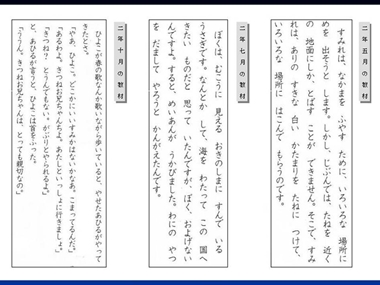 二年五月の教材
すみれは、なかまを ふやす ために、いろいろな 場所に
めを 出そうと します。しかし、じぶんでは、たねを 近く
の 地面にしか、とばす ことが できません。そこで、すみ
れは、ありの すきな 白い かたまりを たねに つけて、
いろいろな 場所に はこんで もらうのです。
二年七月の教材
ぼくは、むこうに 見える おきのしまに すんで いる
うさぎです。なんとか して、海を わたって この 国へ
きたい ものだと 思って いたんですが、ぼく、およげない
んですよ。すると、めいあんが うかびました。わにの やつ
を だまして やろうと かんがえたんです。
二年十月の教材
ひよこが春の歌なんか歌いながら歩いていると、やせたあひるがやって
きたとさ。
「やあ、ひよこ。どこかにいいすみかはないかなあ。こまってるんだ。」
「あるわよ。きつねお兄ちゃんちよ。あたしといっしょに行きましょ。」
「きつね? とうんでもない。がぶりとやられるよ。」
と、あひるが言うと、ひよこは首をふった。
「ううん。きつねお兄ちゃんは、とっても親切なの。」